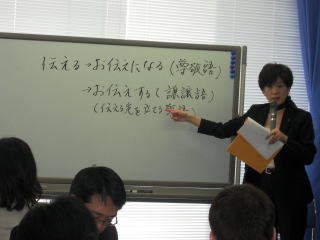 伝える→お伝えになる(尊敬語)
→お伝えする(謙譲語)
(伝える先を立てる敬語)